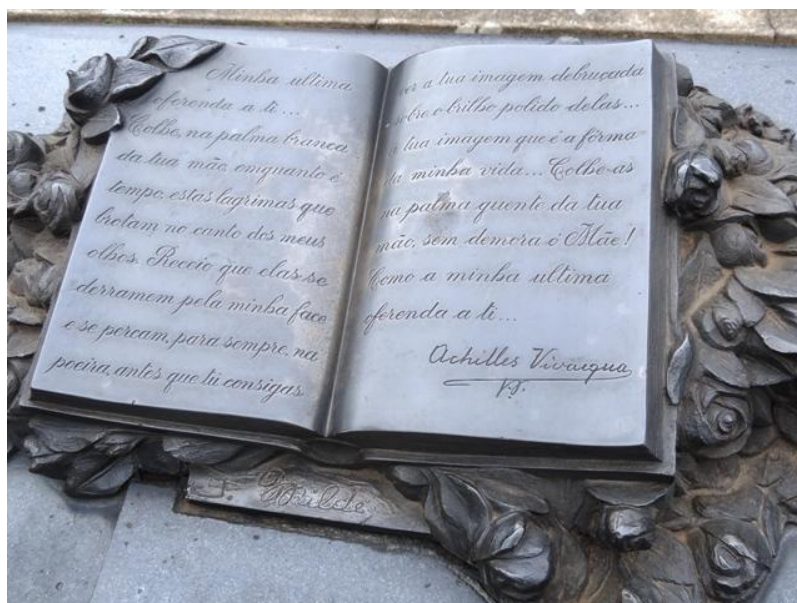 Minha ultima
oferenda a ti...
Colhe, na palma branca
da tua mão, emquanto é
tempo, estas lagrimas que
brotam, no canto dos meus
olhos. Receio que elas se
derramem pela minha face
e se percam, para sempre, na
poeira, antes que tú consigas
ver a tua imagem debruçada
sobre o brilho polido delas...
a tua imagem que é a fórma
da minha vida... Colhe-as
na palma quente da tua
mão, sem demora ó Mãe!
Como a minha ultima
oferenda a ti...
Achilles Vivacqua